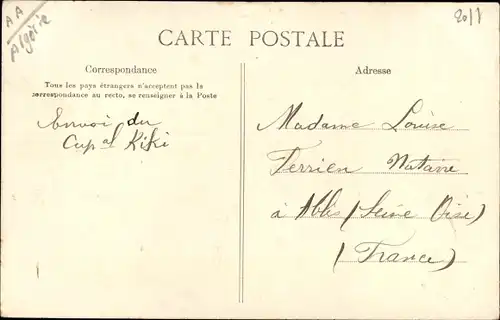 AA
Algérie
2011
CARTE POSTALE
Correspondance
Tous les pays étrangers n'acceptent pas la
correspondance au recto, se renseigner à la Poste
Envoi du
Cap al Kiki
Adresse
Madame Louise
Terrien Notaire
à Ablis (Seine Oise)
(France)